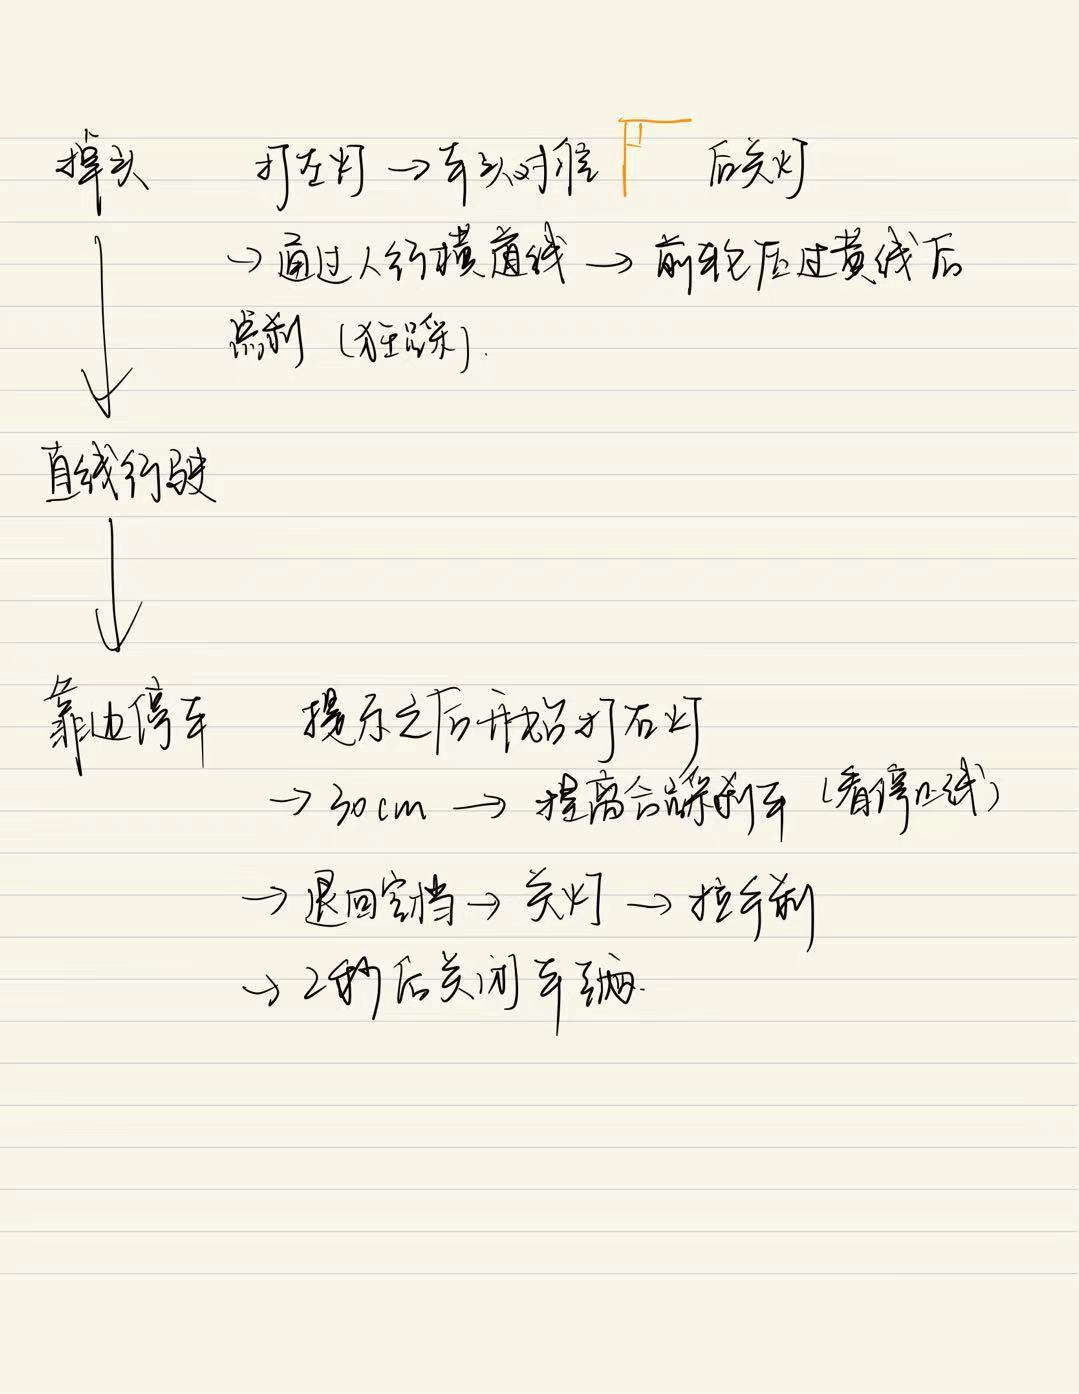 掉头 打左灯 → 车头对准 后关灯
→ 通过人行横道线 → 前轮压过黄线后
点刹 (狂踩).
直线行驶
靠边停车 提示之后开始打右灯
→ 30cm → 提离合踩刹车 (看停止线)
→ 退回空档 → 关灯 → 拉手刹
→ 2秒后关闭车辆.